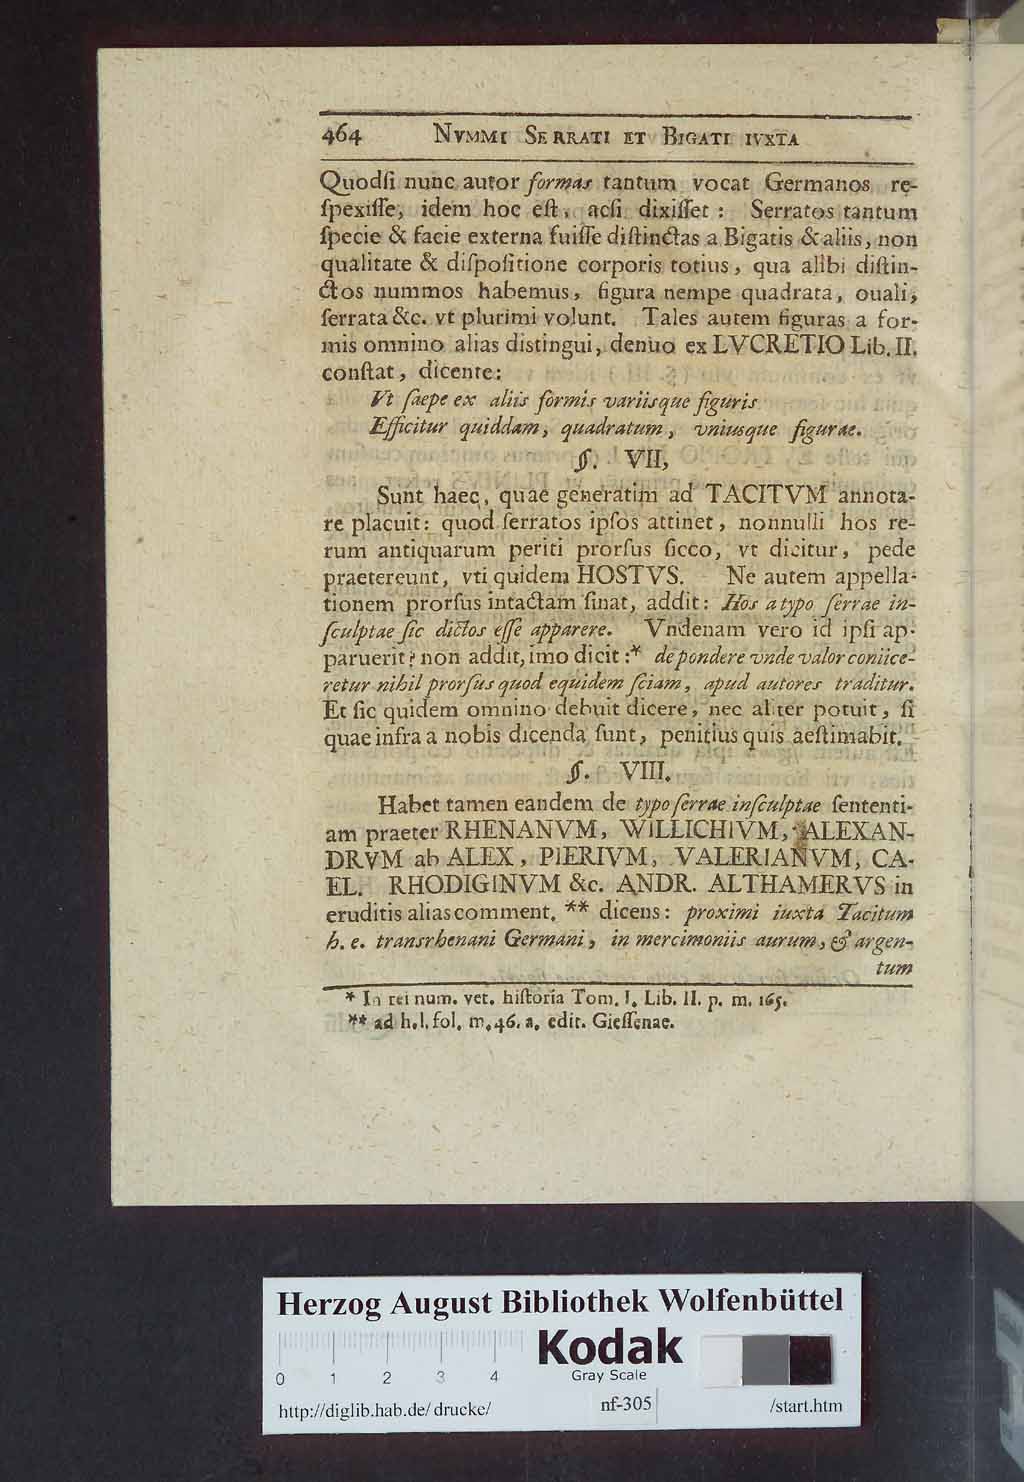 464 NVMMI SERRATI ET BIGATI IVXTA
Quodſi nunc autor formas tantum vocat Germanos re-
ſpexiſſe, idem hoc eſt, acſi dixiſſet : Serratos tantum
ſpecie & facie externa fuiſſe diſtinctas a Bigatis & aliis, non
qualitate & diſpoſitione corporis totius, qua alibi diſtin-
ctos nummos habemus, figura nempe quadrata, ouali,
ſerrata &c. vt plurimi volunt. Tales autem figuras a for-
mis omnino alias distingui, denuo ex LVCRETIO Lib. II.
conſtat, dicente:
Vt ſaepe ex aliis formis variisque figuris
Efficitur quiddam, quadratum, vniusque figurae.
§. VII,
Sunt haec, quae generatim ad TACITVM annota-
re placuit: quod ſerratos ipſos attinet, nonnulli hos re-
rum antiquarum periti prorſus ſicco, vt dicitur, pede
praetereunt, vti quidem HOSTVS. Ne autem appella-
tionem prorſus intactam ſinat, addit: Hos a typo ſerrae in-
ſculptae ſic dictos eſſe apparere. Vndenam vero id ipſi ap-
paruerit? non addit, imo dicit :* de pondere vnde valor coniice-
retur nihil prorſus quod equidem ſciam, apud autores traditur.
Et ſic quidem omnino debuit dicere, nec aliter potuit, ſi
quae infra a nobis dicenda ſunt, penitius quis aeſtimabit.
§. VIII.
Habet tamen eandem de typo ſerrae inſculptae ſententi-
am praeter RHENANVM, WILLICHIVM, ALEXAN-
DRVM ab ALEX, PIERIVM, VALERIANVM, CA-
EL. RHODIGINVM &c. ANDR. ALTHAMERVS in
eruditis alias comment. ** dicens: proximi iuxta Tacitum
h. e. transrhenani Germani, in mercimoniis aurum, & argen-
tum
* In rei num. vet. hiſtoria Tom. I. Lib. II. p. m. 165.
** ad h. l. fol. m. 46. a. edit. Gieſſenae.
Herzog August Bibliothek Wolfenbüttel
Kodak
Gray Scale
0 1 2 3 4
http://diglib.hab.de/drucke/ nf-305 /start.htm